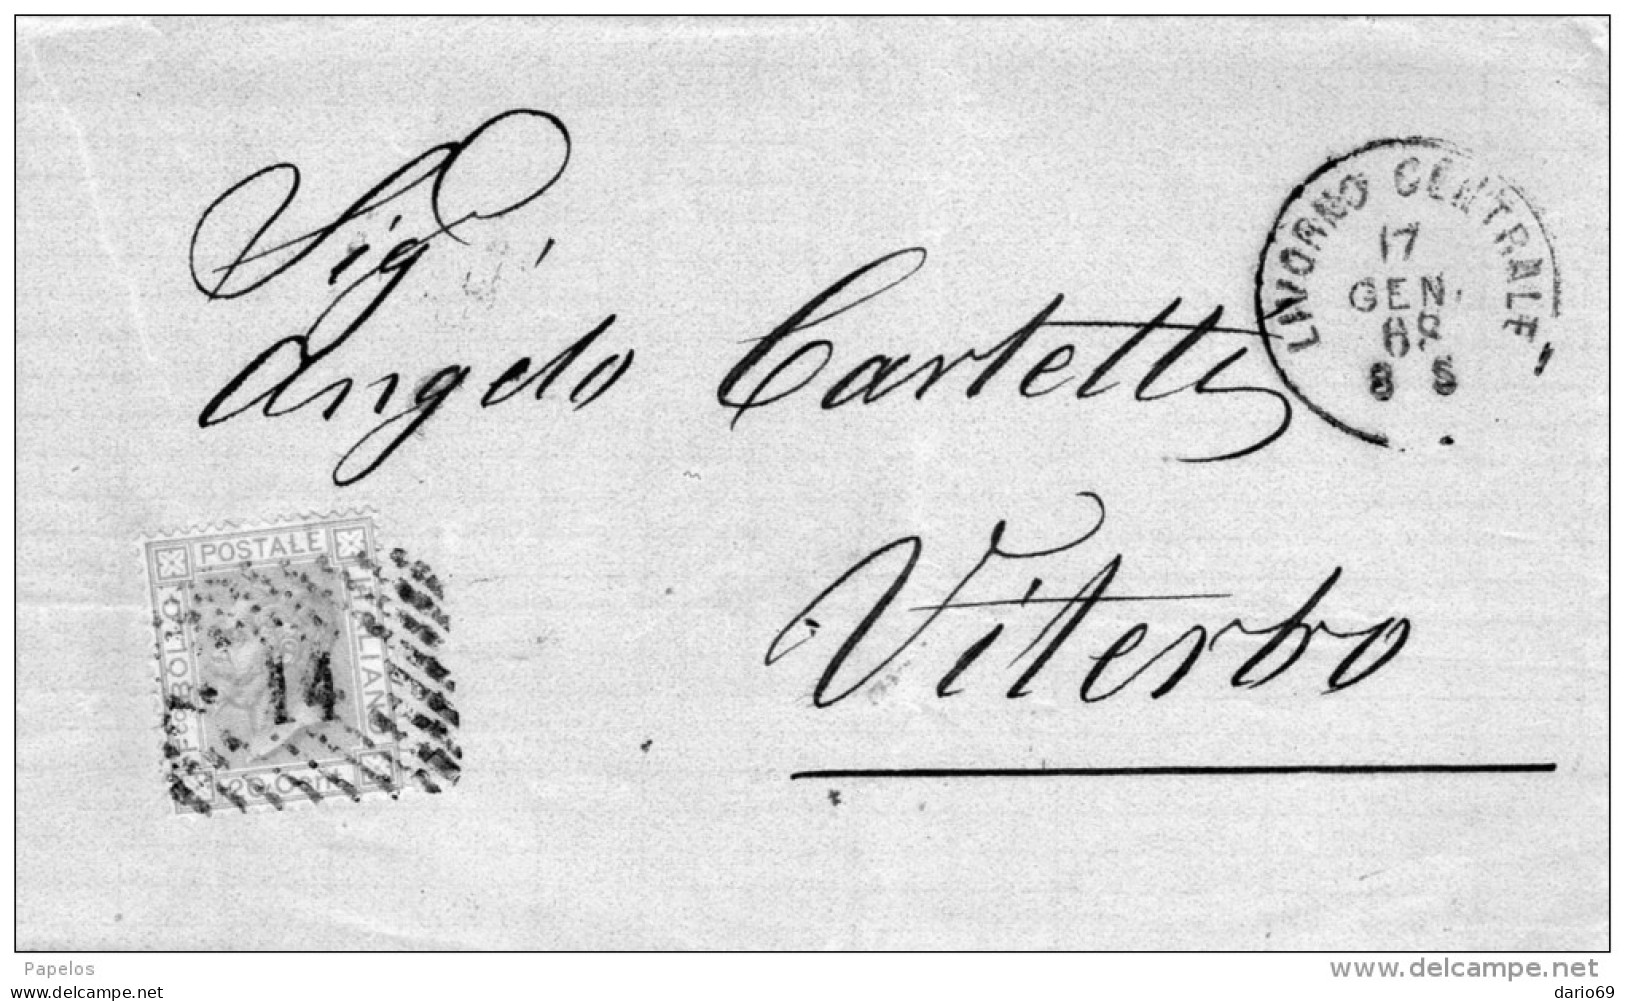 Sig
Angelo Cartetti
Viterbo
LIVORNO CENTRALE
17
GEN.
8 S
POSTALE
BOLLO
ITALIANO
20 Cent
14
Papelos
www.delcampe.net
website
dario69